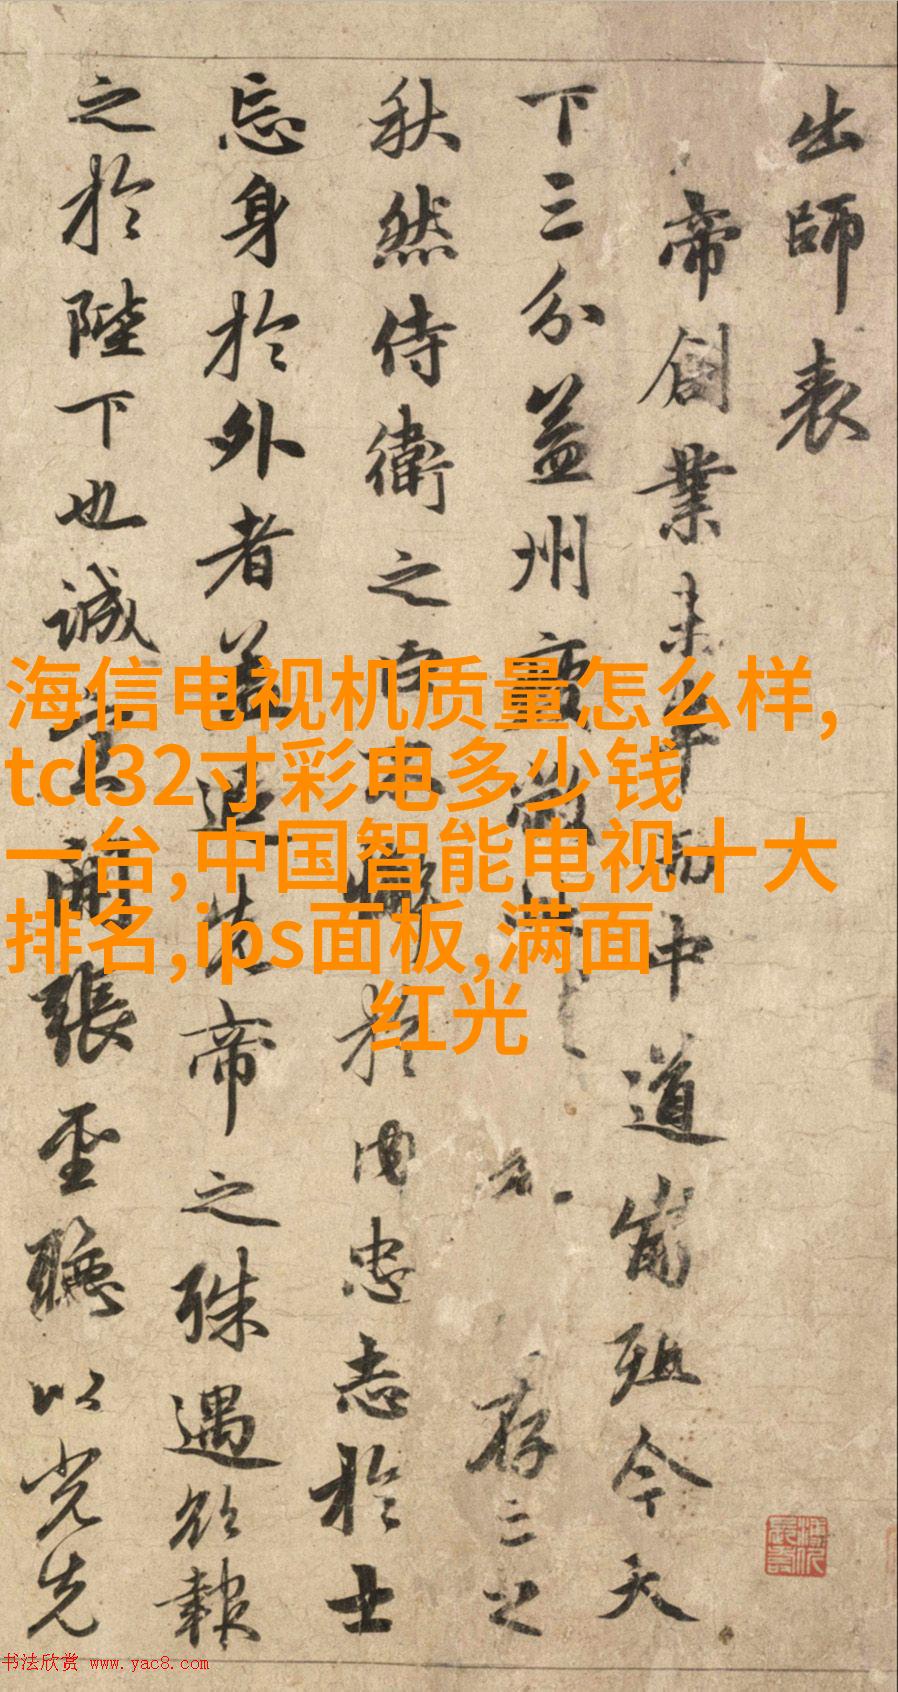 出師表
帝創業未半而中道崩殂今天
下三分益州疲敝存亡之
秋然侍衛之臣不懈於内忠志於士
忘身於外者蓋追先帝之殊遇欲報
之於陛下也誠宜開張聖聽以光先
海信电视机质量怎么样,
tcl32寸彩电多少钱
一台,中国智能电视十大
排名,ips面板,满面
红光
书法欣赏 www.yac8.com